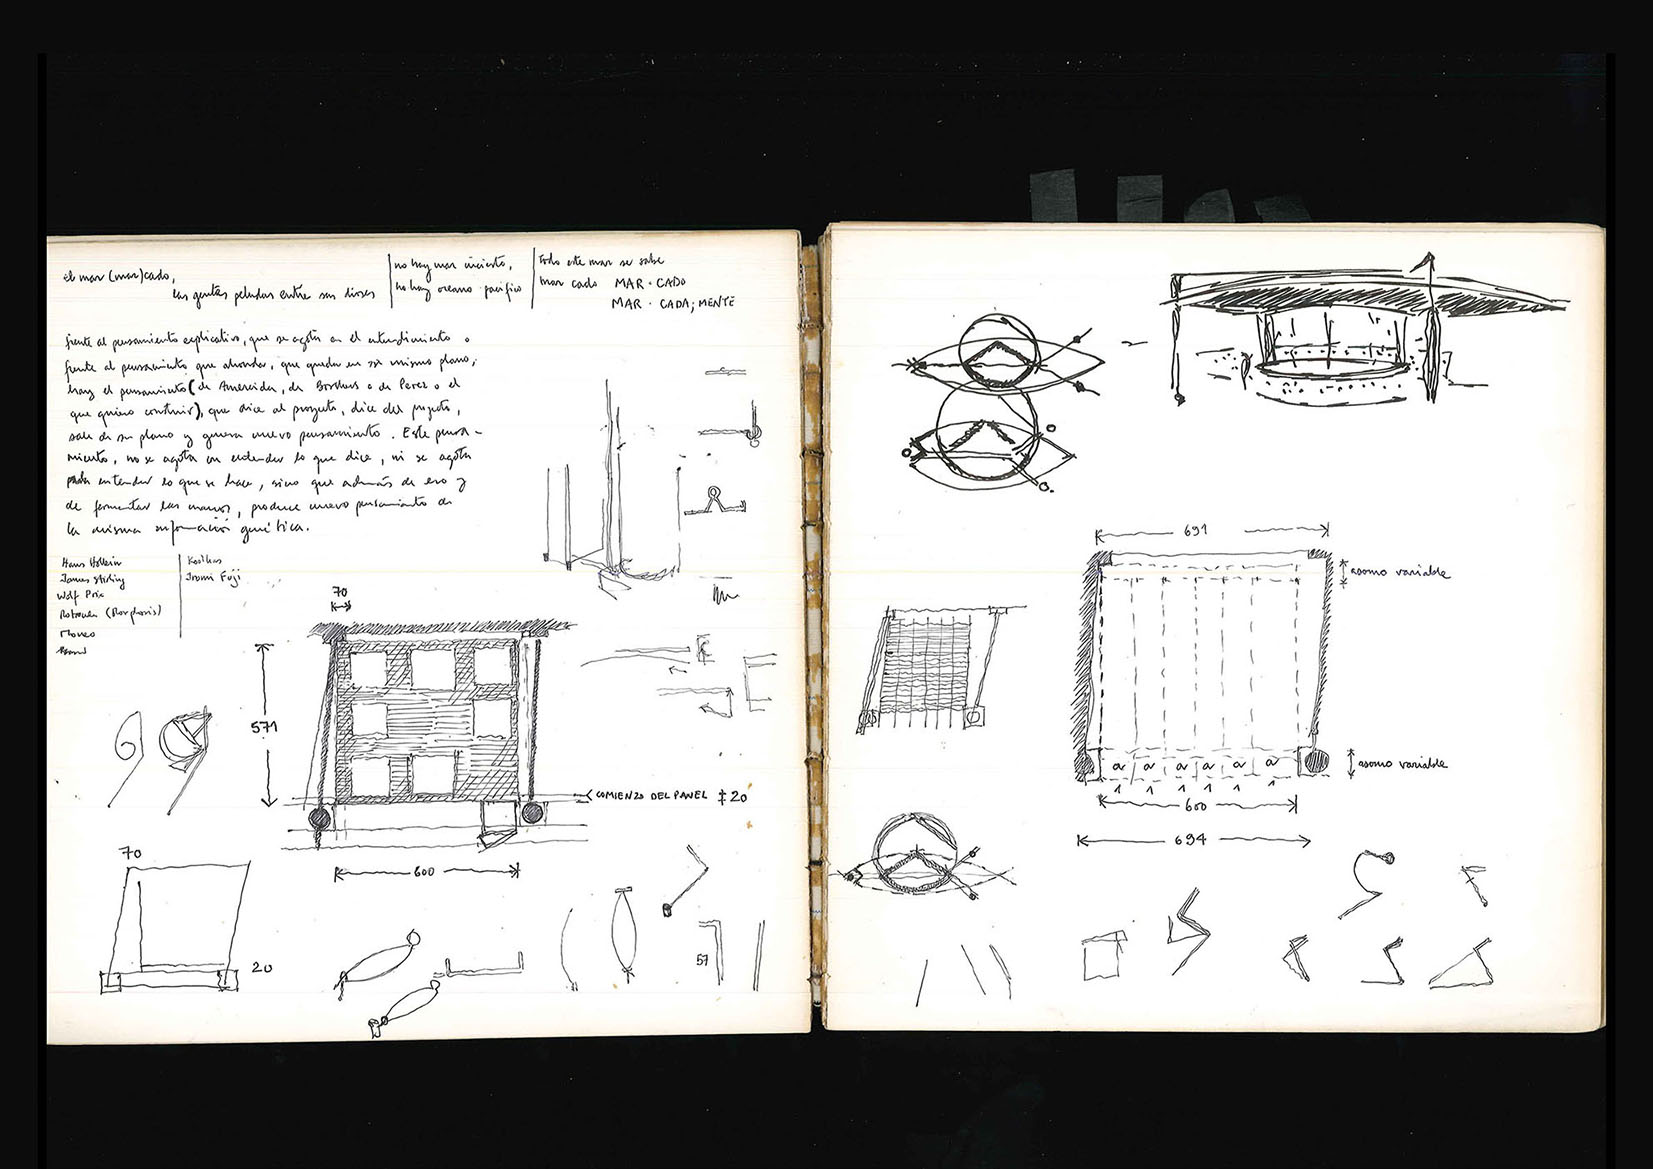 el mar (mar)cado,
las gentes peludas entre sus dioses
no hay mar incierto,
no hay oceano pacifico
todo este mar se sabe
mar cado MAR · CADO
MAR · CADA; MENTE
frente al pensamiento explicativo, que se agota en el entendimiento o
frente al pensamiento que ahonda, que queda en su mismo plano,
hay el pensamiento (de Amereida, de Borchers o de Perez o el
que quiero construir), que dice al proyecto, dice del proyecto,
sale de su plano y genera nuevo pensamiento. Este pensa-
miento, no se agota en entender lo que dice, ni se agota
para entender lo que se hace, sino que además de eso y
de fermentar las manos, produce nuevo pensamiento de
la misma información genética.
Hans Hollein
James Stirling
Wolf Prix
(Morphosis)
Moneo
70
571
COMIENZO DEL PANEL 20
600
70
20
57
691
asomo variable
a a a a a a
asomo variable
1 1 1 1 1 1
600
694